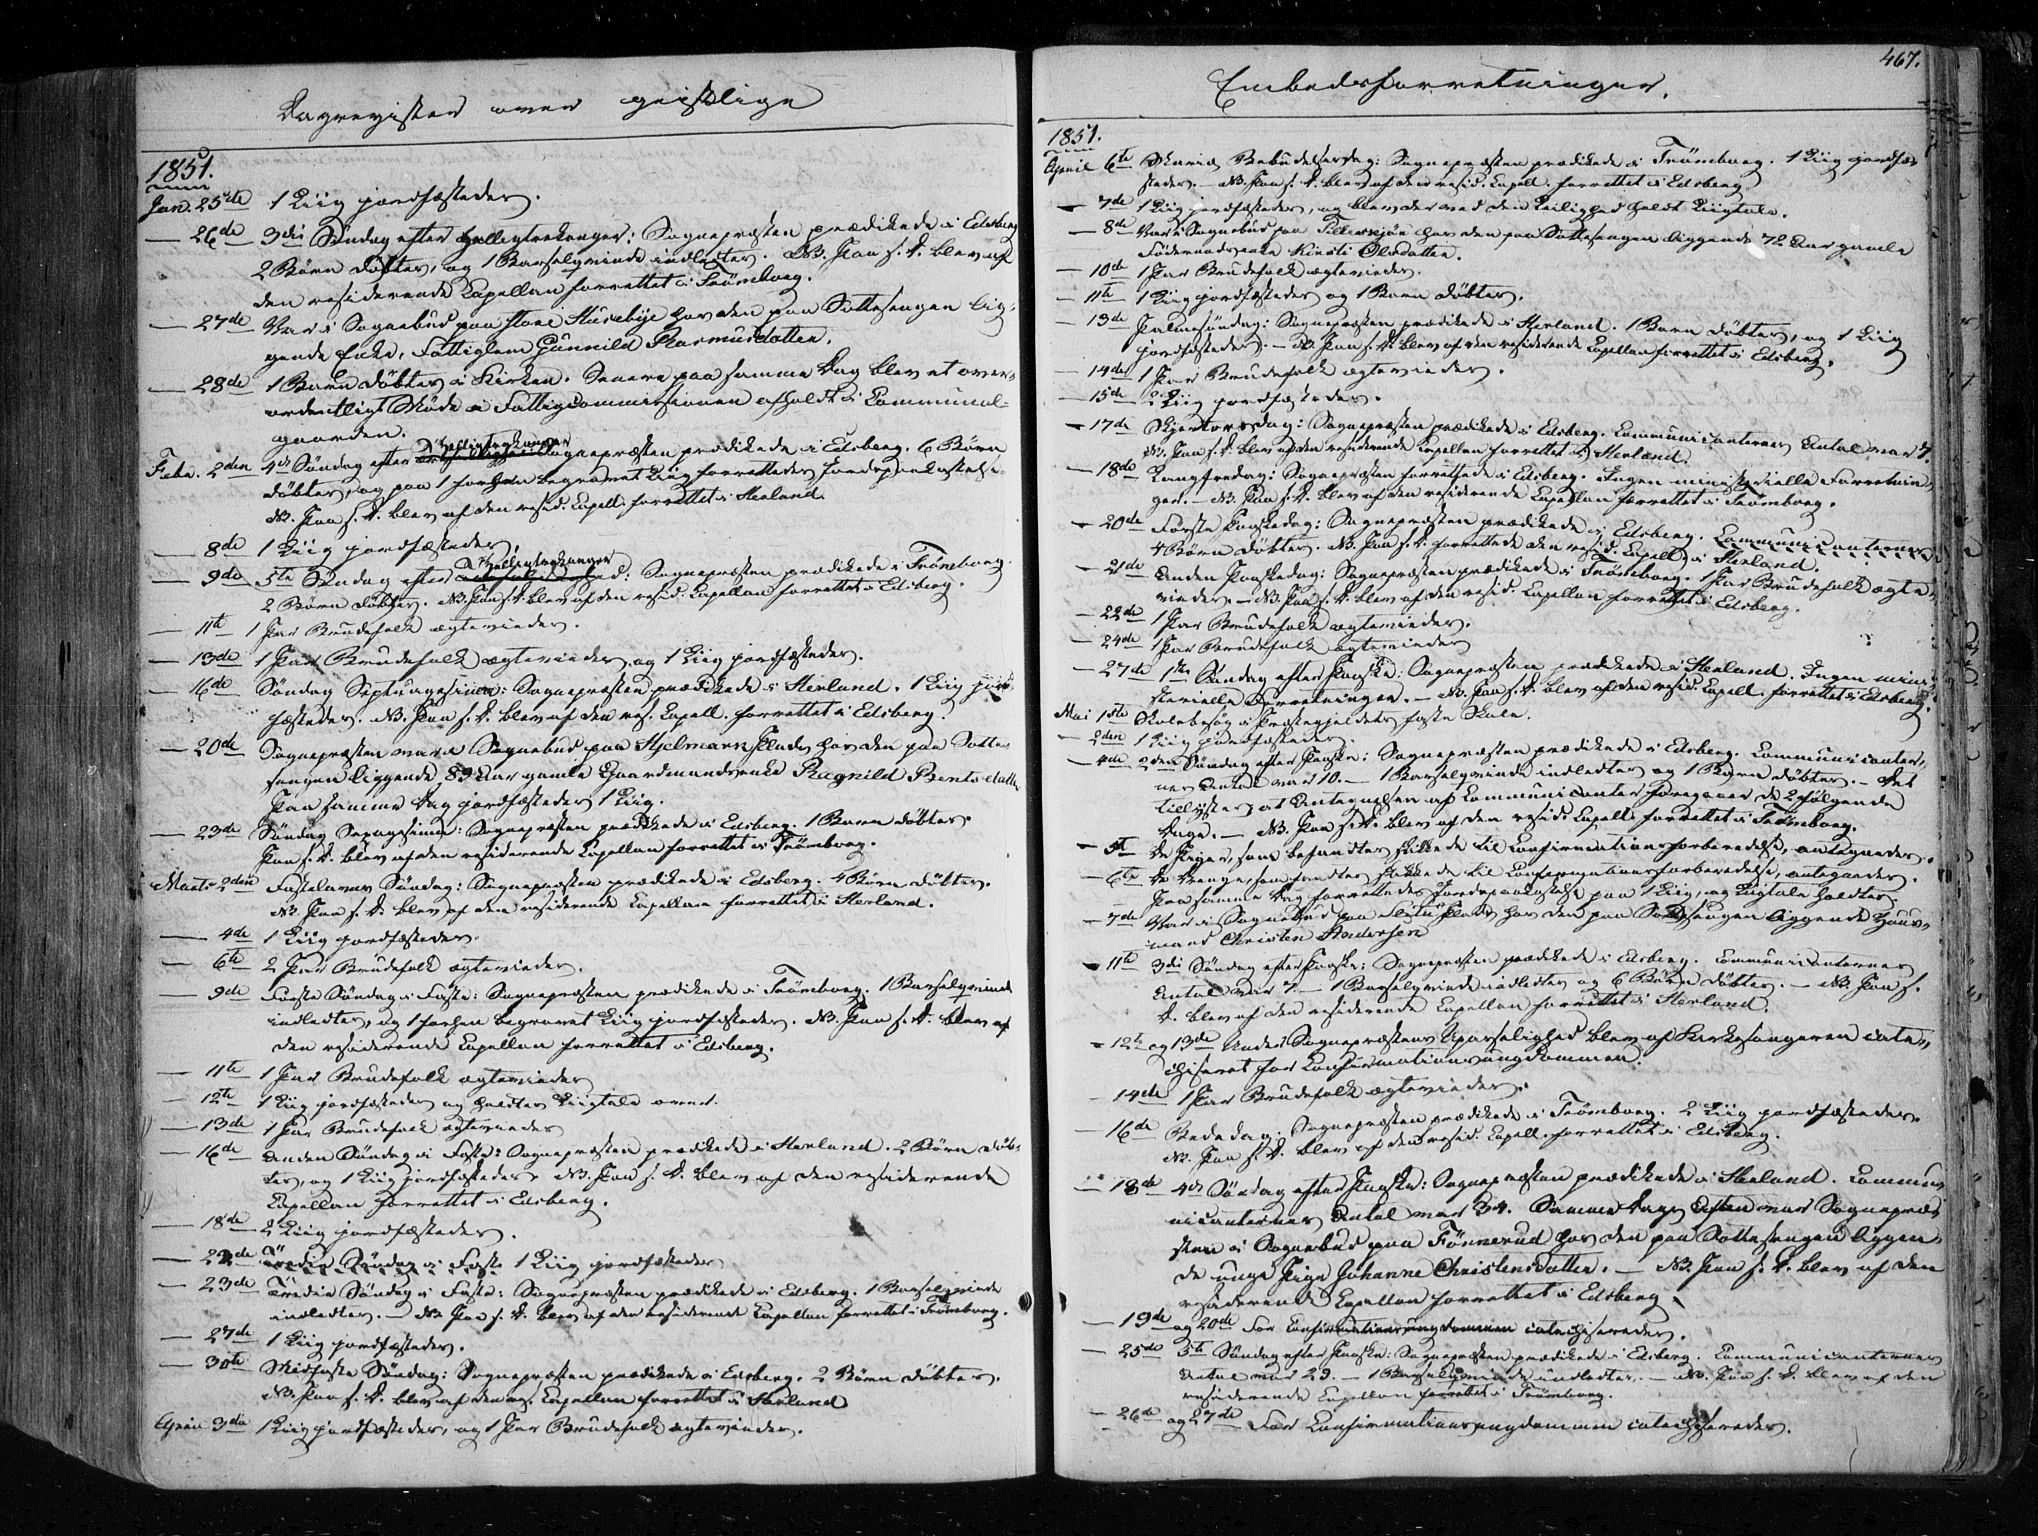 Dagregister over geistlige
1851.
Jan. 25de 1 Liig jordfæstedes.
— 26de 3die Søndag efter Helligtrekonger: Sognepræsten prædikede i Edsberg
2 Børn døbtes, og 1 Barselqvinde indledtes. NB. Paa s. D. blev af
den residerende Capellan forrettet i Trømborg.
— 27de Var i Sognebud paa store Huseby hos den paa Sottesengen lig-
gende Enke, Fattiglem Gunnild Rasmusdatter.
— 28de 1 Barn døbtes i Kirken. Senere paa samme Dag blev et over-
ordentligt Møde i Fattigcommissionen afholdt i Communal-
gaarden.
Helligtrekonger
Febr. 2den 4de Søndag efter Sognepræsten prædikede i Edsberg. 6 Børn
døbtes, og paa 1 forhen begravet Liig forrettedes Jordspaakastelse
NB. Paa s. D. blev af den resid. Capell. forrettet i Herland.
— 8de 1 Liig jordfæstedes.
Helligtrekonger
— 9de 5te Søndag efter : Sognepræsten prædikede i Trømborg.
2 Børn døbtes. NB. Paa s. D. blev af den resid. Capellan forrettet i Edsberg.
— 11te 1 Par Brudefolk ægteviedes.
— 13de 1 Par Brudefolk ægteviedes, og 1 Liig jordfæstedes.
— 16de Søndag Septuagesima: Sognepræsten prædikede i Herland. 1 Liig jord-
fæstedes. NB. Paa s. D. blev af den res. Capell. forrettet i Edsberg.
— 20de Sognepræsten var i Sognebud paa Hjelmarк Plads hos den paa Sotte-
sengen liggende, 89 Aar gamle Gaardmandsenke Ragnild Bentsdatter
Paa samme Dag jordfæstedes 1 Liig.
— 23de Søndag Sexagesima: Sognepræsten prædikede i Edsberg. 1 Barn døbtes.
Paa s. D. blev af den residerende Capellan forrettet i Trømborg.
Marts 2den Fastelavns Søndag: Sognepræsten prædikede i Edsberg. 4 Børn døbtes.
NB. Paa s. D. blev af den residerende Capellan forrettet i Herland.
— 4de 1 Liig jordfæstedes.
— 6te 2 Par Brudefolk ægteviedes.
— 9de Første Søndag i Faste: Sognepræsten prædikede i Trømborg. 1 Barselqvinde
indledtes, og 1 forhen begravet Liig jordfæstedes. NB. Paa s. D. blev af
den residerende Capellan forrettet i Edsberg.
— 11te 1 Par Brudefolk ægteviedes
— 12te 1 Liig jordfæstedes og holdtes Liigtale over.
— 13de 1 Par Brudefolk ægteviedes
— 16de Anden Søndag i Faste: Sognepræsten prædikede i Herland. 2 Børn døb-
tes, og 1 Liig jordfæstedes. NB. Paa s. D. blev af den residerende
Capellan forrettet i Edsberg.
— 18de 2 Liig jordfæstedes.
— 22de Tredie Søndag i Faste 1 Liig jordfæstedes
— 23de Tredie Søndag i Faste: Sognepræsten prædikede i Edsberg. 1 Barselqvinde
indledtes. — NB. Paa s. D. blev af den residerende Capellan forrettet i Trømborg.
— 27de 1 Liig jordfæstedes.
— 30te Midfaste Søndag: Sognepræsten prædikede i Edsberg. 2 Børn døbtes.
NB. Paa s. D. blev af den res. Capellan forrettet i Herland
April 3die 1 Liig jordfæstedes, og 1 Par Brudefolk ægteviedes.
467.
Embedsforretninger.
1851.
April 6te Mariæ Bebudelsesdag: Sognepræsten prædikede i Trømborg. 1 Liig jordfæ-
stedes. — NB. Paa s. D. blev af den resid. Capell. forrettet i Edsberg
— 7de 1 Liig jordfæstedes, og blev derved den Leilighed holdt Liigtale.
— 8de Var i Sognebud paa hos den paa Sottesengen liggende 72 Aar gamle
Føderaadsenke Kirsti Olsdatter.
— 10de 1 Par Brudefolk ægteviedes.
— 11te 1 Liig jordfæstedes og 1 Barn døbtes.
— 13de Palmesøndag: Sognepræsten prædikede i Herland. 1 Barn døbtes, og 1 Liig
jordfæstedes. — NB. Paa s. D. blev af den residerende Capellan forrettet i Edsberg.
— 14de 1 Par Brudefolk ægteviedes.
— 15de 2 Liig jordfæstedes.
— 17de Skjertorsdag: Sognepræsten prædikede i Edsberg. Communicanternes Antal var 7.
NB. Paa s. D. blev af den residerende Capellan forrettet i Herland.
— 18de Langfredag: Sognepræsten forrettede i Edsberg. Ingen ministerielle Forretnin-
ger. — NB. Paa s. D. blev af den residerende Capellan forrettet i Trømborg.
— 20de Første Paaskedag: Sognepræsten prædikede i Edsberg. Communicanternes
4 Børn døbtes. NB. Paa s. D. forrettede den resid. Capell. i Herland.
— 21de Anden Paaskedag: Sognepræsten prædikede i Trømborg. 1 Par Brudefolk ægte-
viedes. — NB. Paa s. D. blev af den resid. Capellan forrettet i Edsberg.
— 22de 1 Par Brudefolk ægteviedes.
— 24de 1 Par Brudefolk ægteviedes
— 27de 1ste Søndag efter Paaske: Sognepræsten prædikede i Herland. Ingen mini-
sterielle Forretninger. — NB. Paa s. D. blev af den resid. Capell. forrettet i Edsberg.
Mai 1ste Skolebesøg i Præstegjeldets faste Skole.
— 2den 1 Liig jordfæstedes.
— 4de 2den Søndag efter Paaske: Sognepræsten prædikede i Edsberg. Communicanter-
nes Antal var 10. — 1 Barselqvinde indledtes og 1 Barn døbtes. — Det
tillystes, at Antegnelsen af Communicanter foregaaer de 2 følgende
Dage. — NB. Paa s. D. blev af den resid. Capell. forrettet i Trømborg.
— 5te De Piger, som befandtes skikkede til Confirmationsforberedelse, antegnedes.
— 6te De Drenge, som fandtes skikkede til Confirmationsforberedelse, antegnedes.
Paa samme Dag forrettedes Jordspaakastelse paa 1 Liig, og Liigtale holdtes.
— 7de Var i Sognebud paa Plads hos den paa Sottesengen liggende Huus-
mand Christen Andersen
— 11te 3die Søndag efter Paaske: Sognepræsten prædikede i Edsberg. Communicanternes
Antal var 7 — 1 Barselqvinde indledtes og 6 Børn døbtes. — NB. Paa s.
D. blev af den residerende Capellan forrettet i Herland.
— 12te og 13de Under Sognepræstens Upasselighed blev af Kirkesangeren cate-
chiseret for Confirmationsungdommen.
— 14de 1 Par Brudefolk ægteviedes.
— 16de Bededag: Sognepræsten prædikede i Trømborg. 2 Liig jordfæstedes.
NB. Paa s. D. blev af den resid. Capell. forrettet i Edsberg.
— 18de 4de Søndag efter Paaske: Sognepræsten prædikede i Herland. Commu-
nicanternes Antal var 34. Samme Dags Aften var Sognepræ-
sten i Sognebud paa Fønnerud hos den paa Sottesengen liggen-
de unge Pige Johanne Christensdatter. — NB. Paa s. D. blev af den
residerende Capellan forrettet i Edsberg.
— 19de og 20de For Confirmationsungdommen catechiseredes.
— 25de 5te Søndag efter Paaske: Sognepræsten prædikede i Edsberg. Communicanternes
Antal var 23. — 1 Barselqvinde indledtes. — NB. Paa s. D. blev af den
residerende Capellan forrettet i Trømborg.
— 26de og 27de For Confirmationsungdommen catechiseredes.